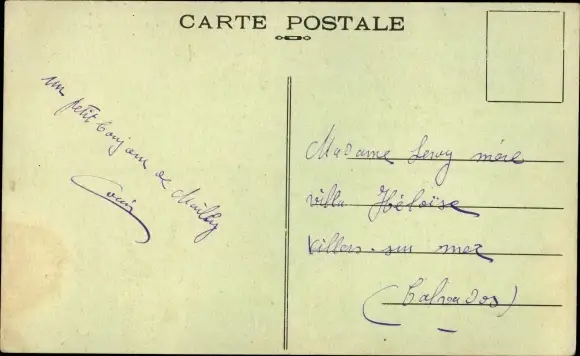 CARTE POSTALE
un
petit bonjour de Milly
Louis
Madame Leroy mère
villa Héloïse
Villers-sur mer
(Calvados)